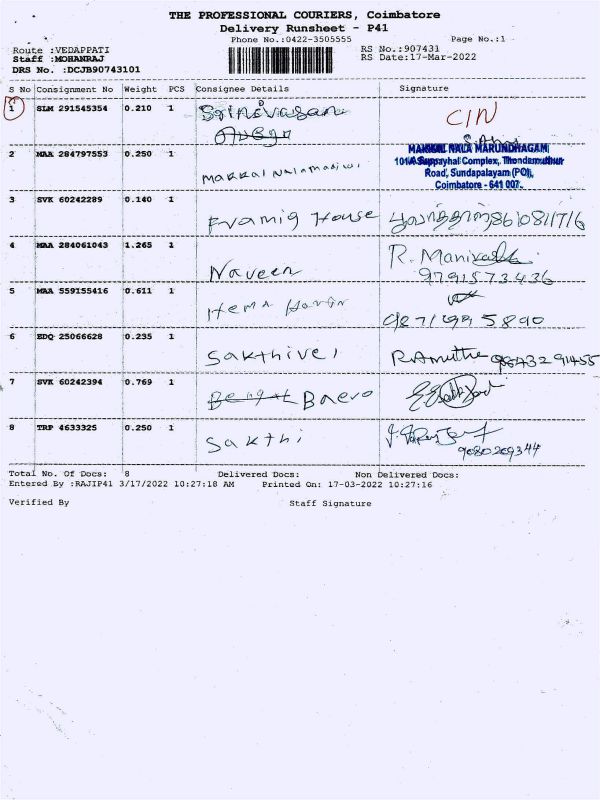 THE PROFESSIONAL COURIERS, Coimbatore
Delivery Runsheet - P41
Phone No.:0422-3505555 Page No.:1
Route :VEDAPPATI RS No.:907431
Staff :MOHANRAJ RS Date:17-Mar-2022
DRS No. :DCJB90743101
S No Consignment No Weight PCS Consignee Details Signature
1 SLM 291545354 0.210 1 Srinivasan CIN
2 MAA 284797553 0.250 1 Makkal
MAKKAL NALA MARUNDHAGAM
101/A Suppayhal Complex, Thondamuthur
Road, Sundapalayam (PO),
Coimbatore - 641 007.
3 SVK 60242289 0.140 1 Framig House 8610811716
4 MAA 284061043 1.265 1 Naveen R. Manika
9791573436
5 MAA 559155416 0.611 1 Hema
6 EDQ 25066628 0.235 1 Sakthivel R Amutha
7 SVK 60242394 0.769 1 Baevo
8 TRP 4633325 0.250 1 Sakthi
9080269344
Total No. Of Docs: 8 Delivered Docs: Non Delivered Docs:
Entered By :RAJIP41 3/17/2022 10:27:18 AM Printed On: 17-03-2022 10:27:16
Verified By Staff Signature